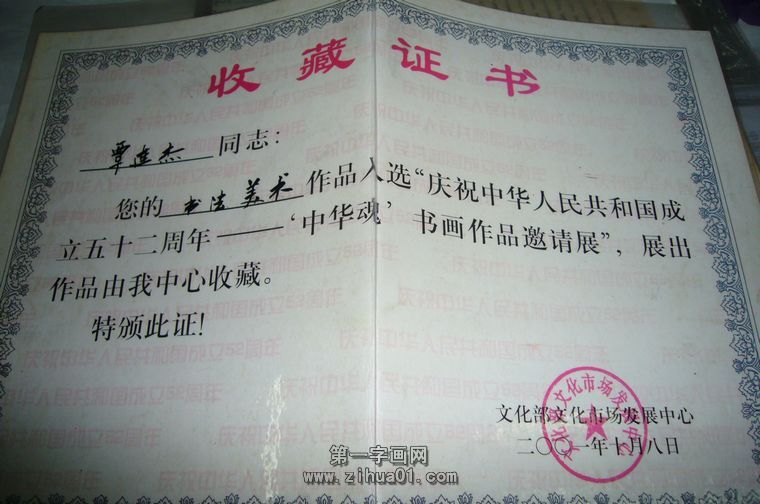 收藏证书
覃连杰 同志：
您的 书法美术 作品入选“庆祝中华人民共和国成
立五十二周年——‘中华魂’书画作品邀请展”，展出
作品由我中心收藏。
特颁此证！
文化部文化市场发展中心
二〇〇一年十月八日
文化部文化市场发展中心
庆祝中华人民共和国成立52周年
第一字画网
www.zihua01.com